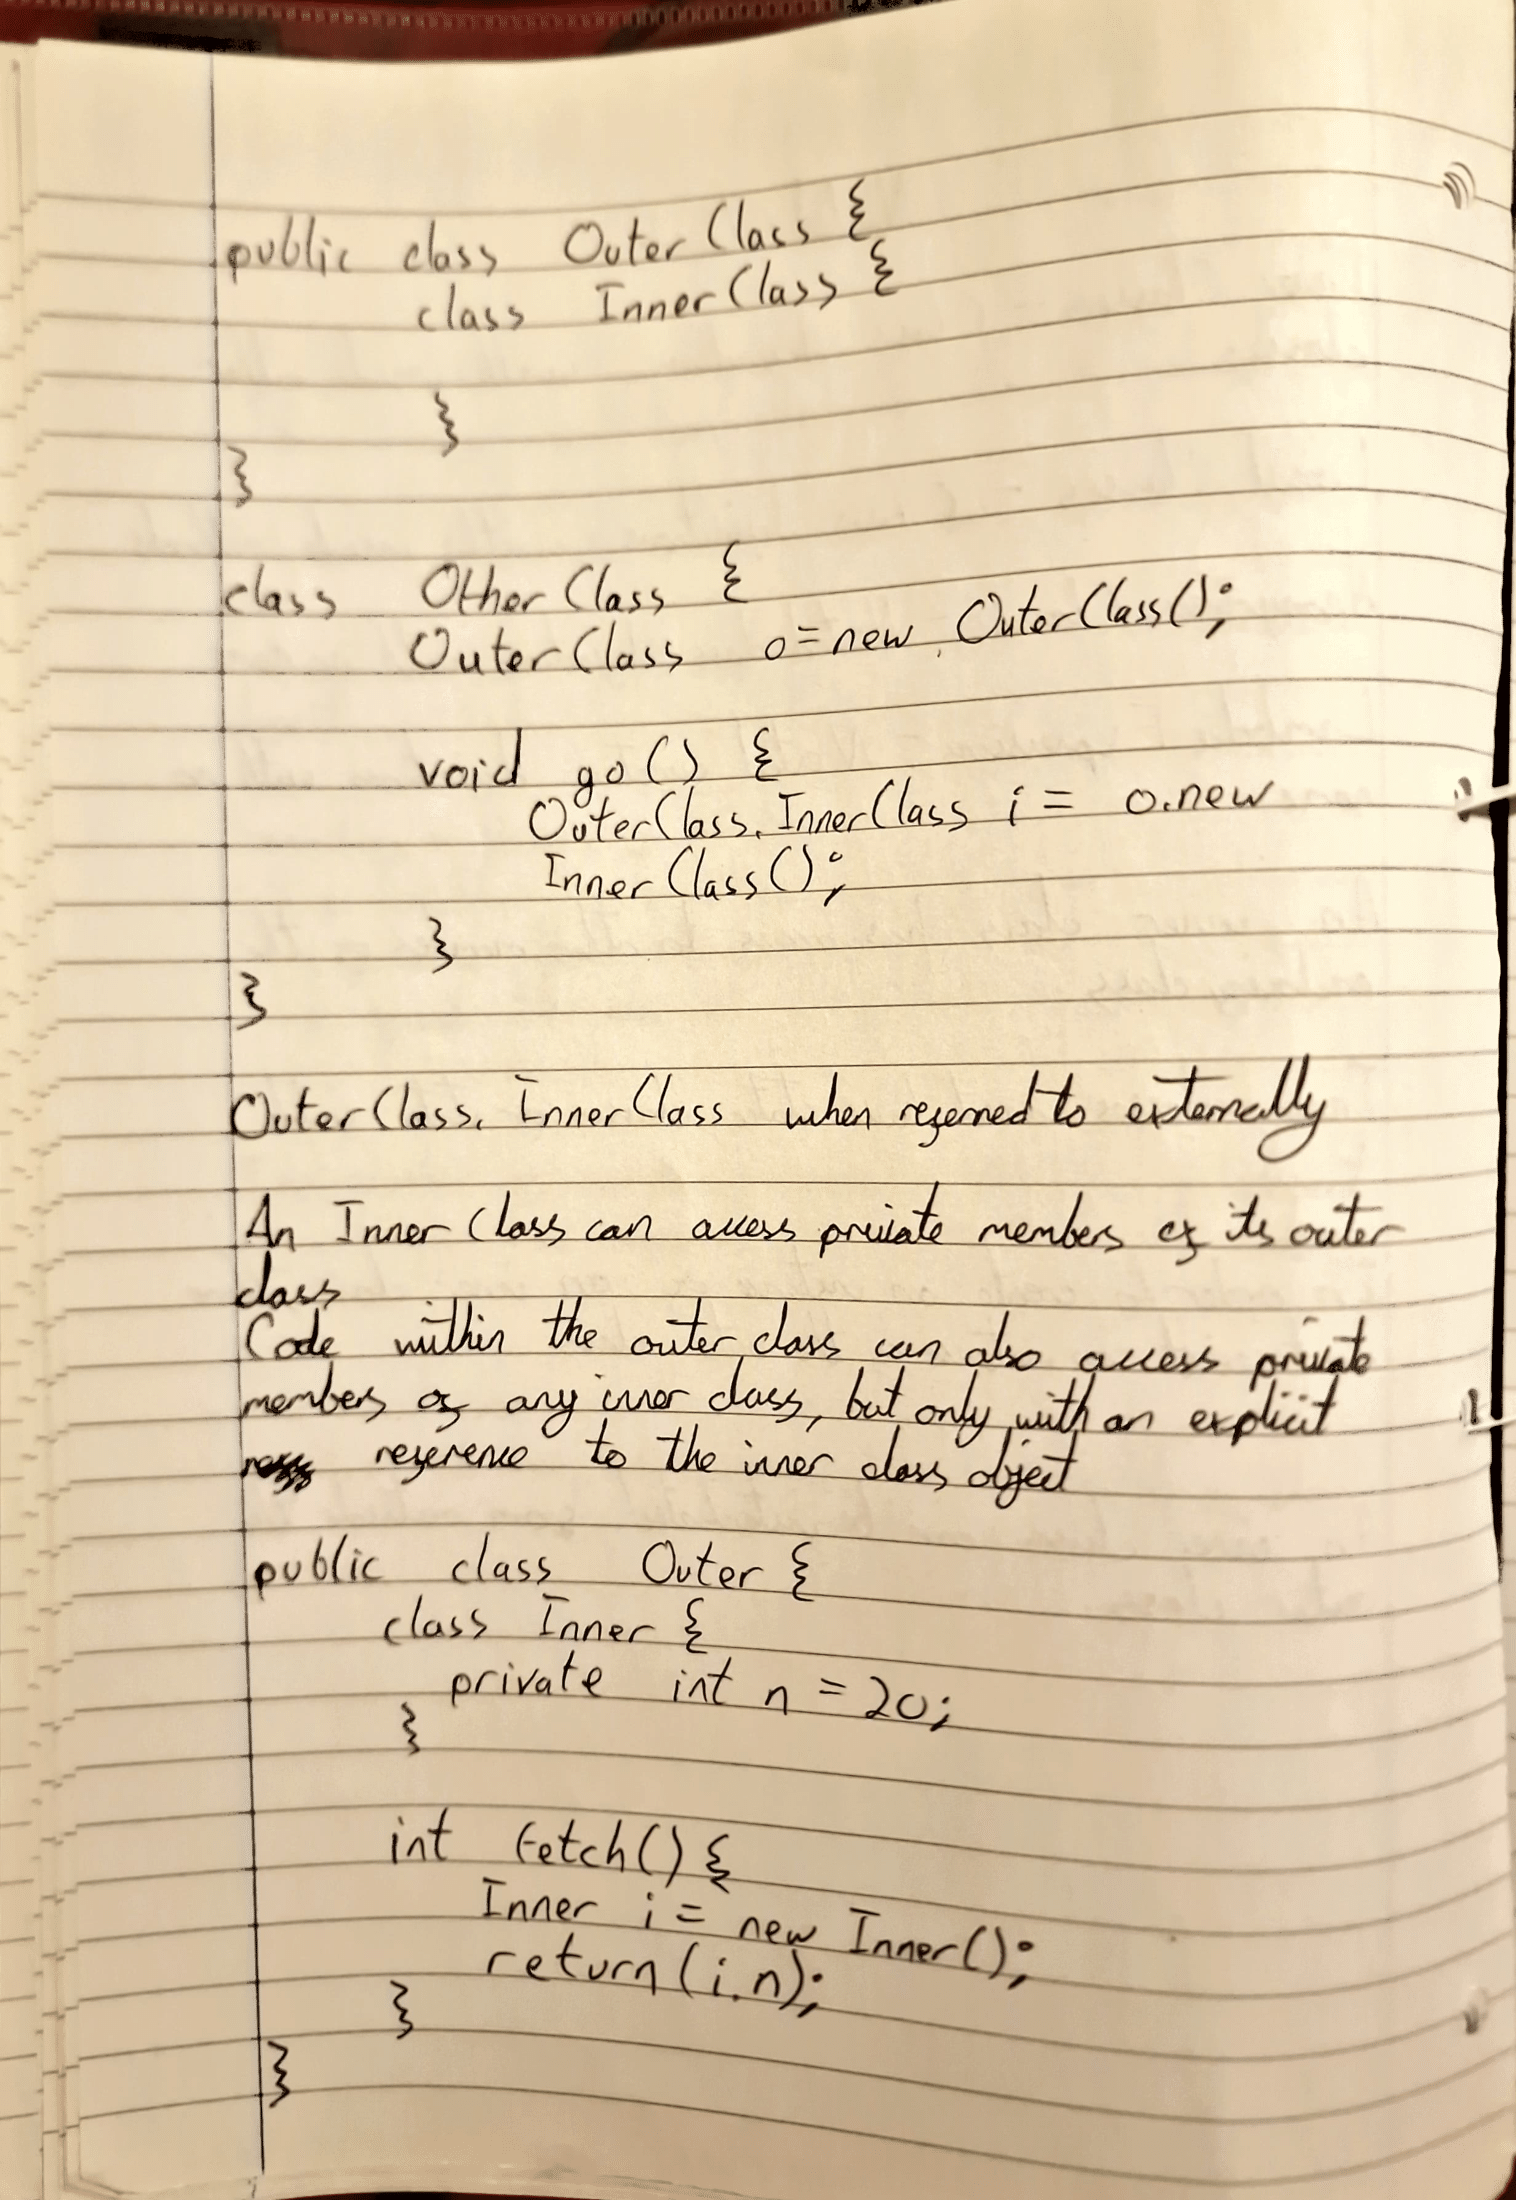 public class OuterClass {
class InnerClass {
}
}
class OtherClass {
OuterClass o = new OuterClass();
void go() {
OuterClass.InnerClass i = o.new
InnerClass();
}
}
OuterClass.InnerClass when referred to externally
An Inner Class can access private members of its outer
class
Code within the outer class can also access private
members of any inner class, but only with an explicit
reference to the inner class object
public class Outer {
class Inner {
private int n = 20;
}
int fetch() {
Inner i = new Inner();
return(i.n);
}
}